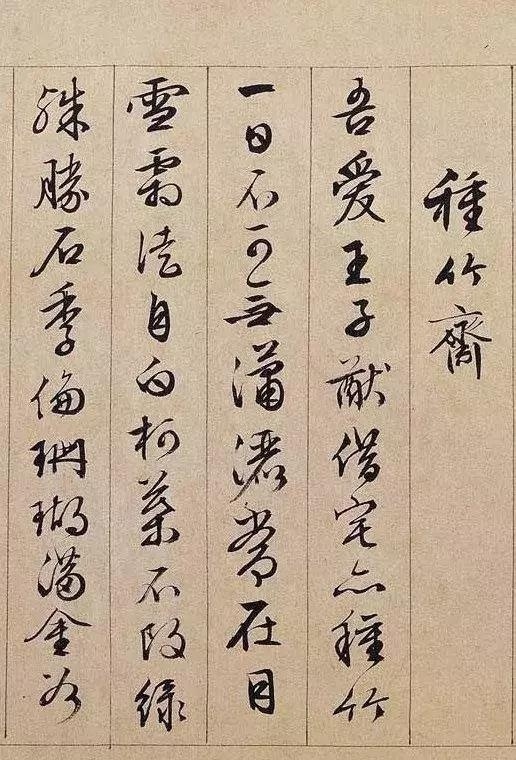 種竹齋
吾愛王子猷借宅亦種竹
一日不可無瀟灑常在目
雪霜徒自白柯葉不改綠
殊勝石季倫珊瑚滿金谷